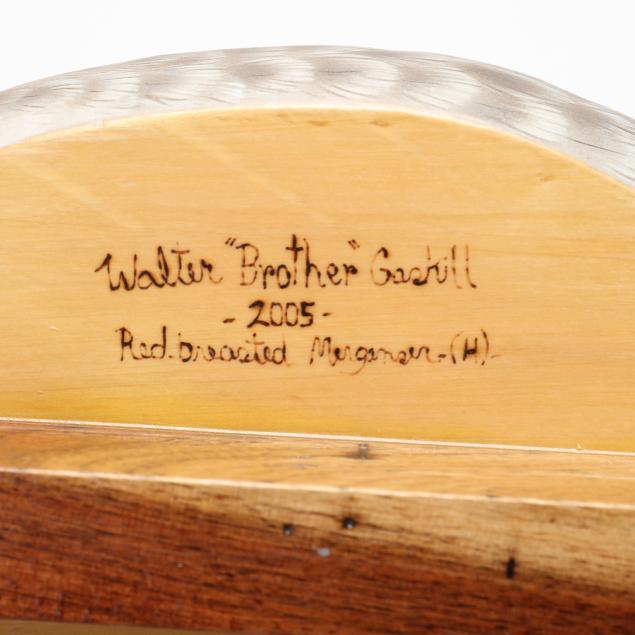 Walter "Brother" Gaskill
- 2005 -
Red-breasted Merganser-(H)-